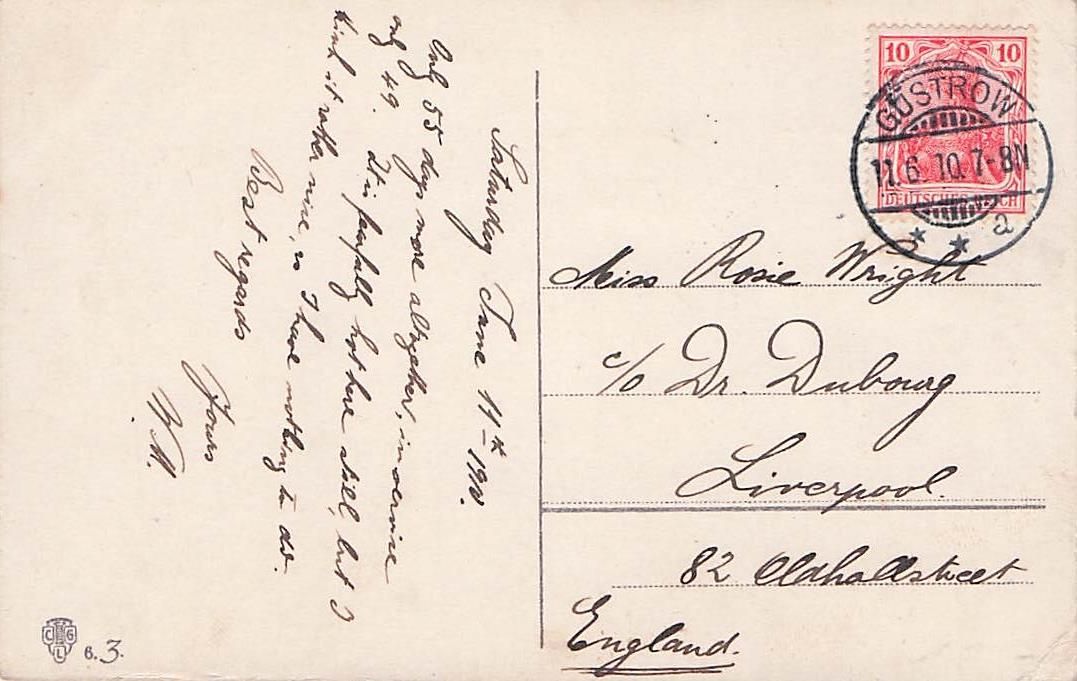 Saturday June 11th 1910.
Only 55 days more altogether, in service
only 49. It is fearfully hot here still, but I
think it rather nice, as I have nothing to do.
Best regards
Yours
W.M.
10 10
DEUTSCHES REICH
GÜSTROW
11.6.10.7-8N
* * a
Miss Rosie Wright
c/o Dr. Dubourg
Liverpool.
82 Oldhallstreet
England.
C G
L
6. 3.